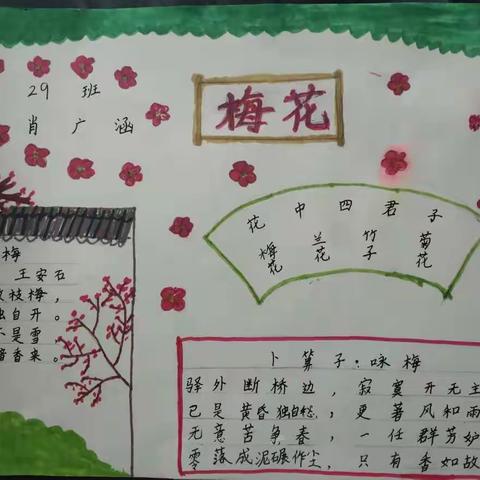 29 班
肖广涵
梅花
花中四君子
梅花 兰花 竹子 菊花
梅
王安石
枝梅，
独自开。
不是雪
暗香来。
卜算子：咏梅
驿外断桥边，寂寞开无主
已是黄昏独自愁，更著风和雨
无意苦争春，一任群芳妒
零落成泥碾作尘，只有香如故